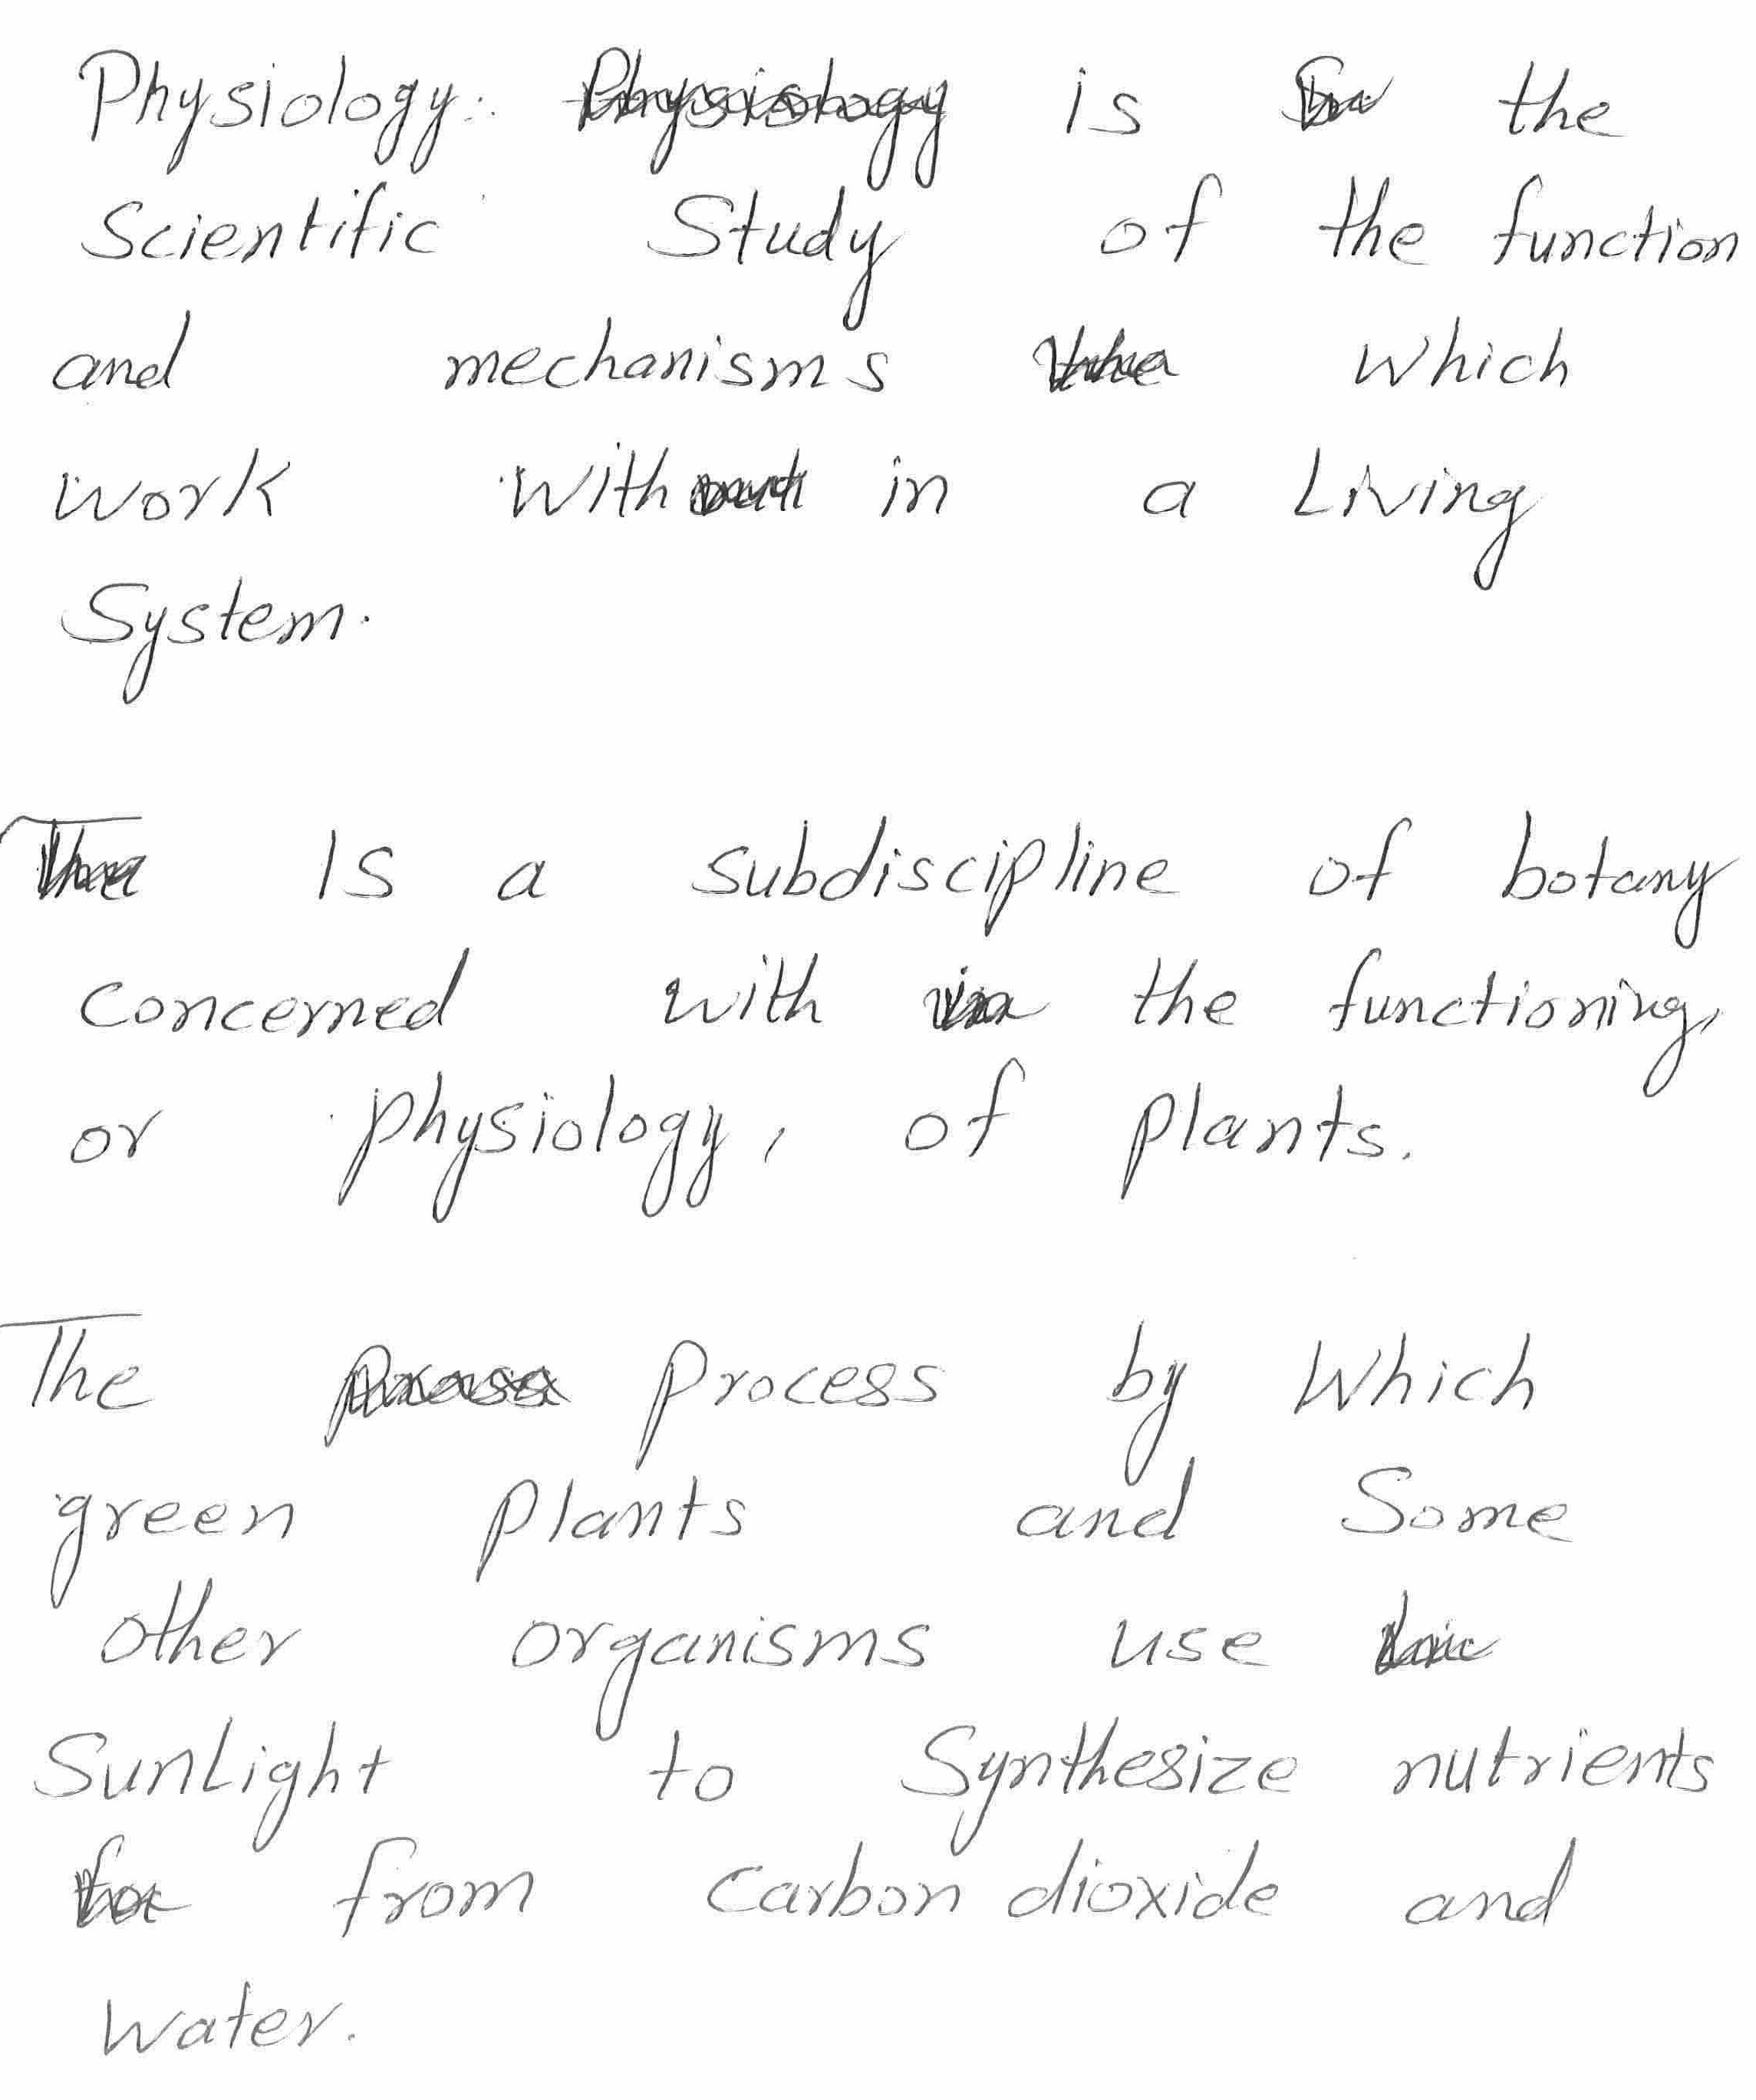 Physiology: is the
Scientific Study of the function
and mechanisms which
work with in a Living
System.
Is a subdiscipline of botany
concerned with the functioning,
or physiology, of plants.
The process by Which
green plants and Some
other organisms use
SunLight to Synthesize nutrients
from carbon dioxide and
water.